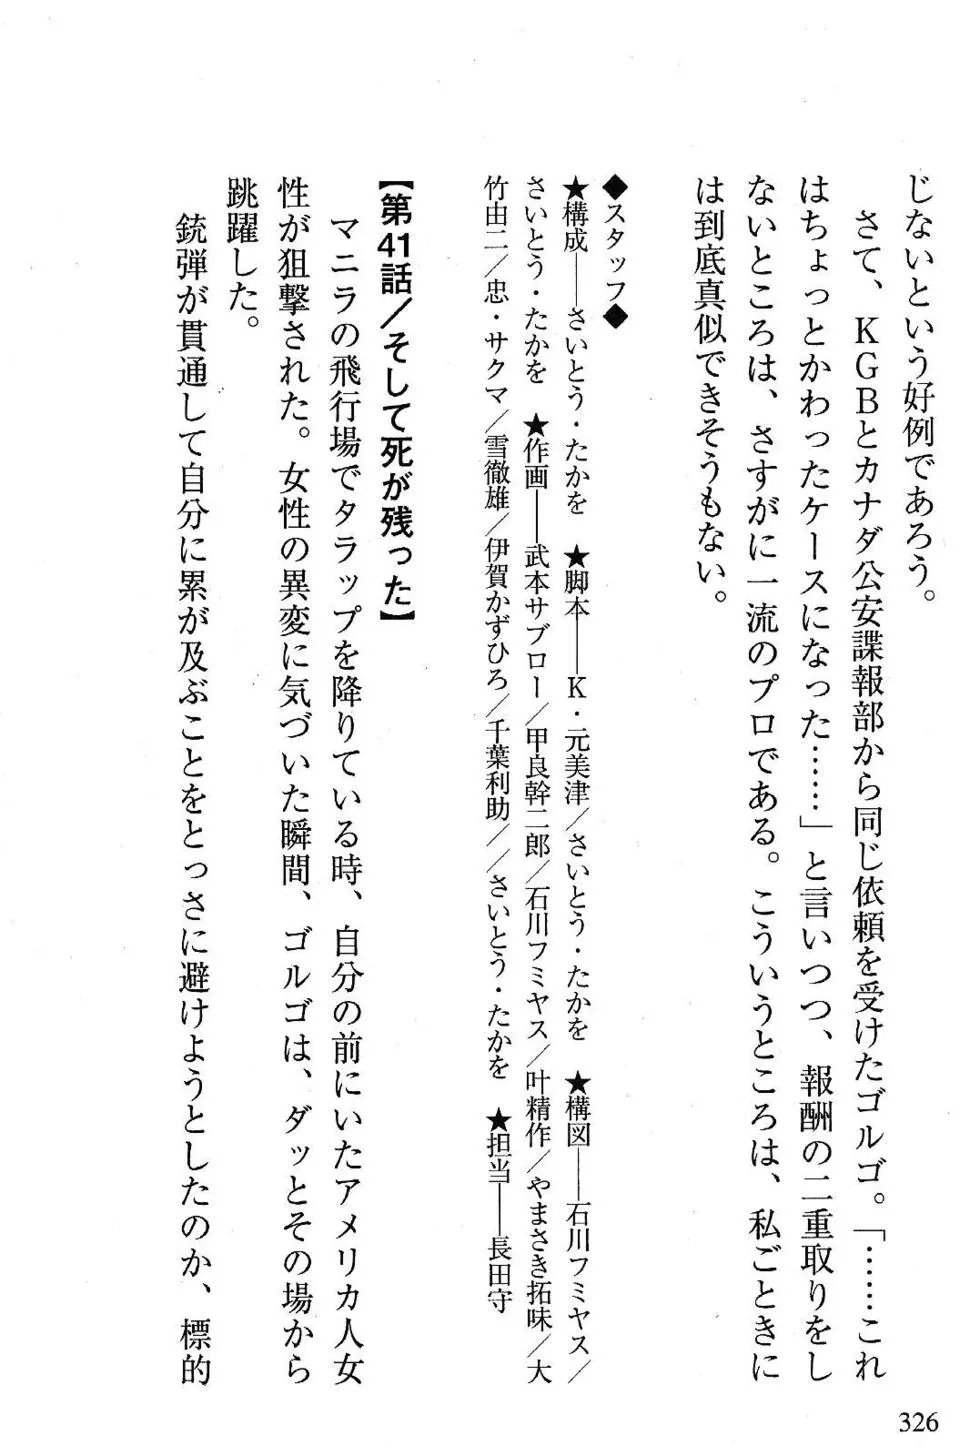 じないという好例であろう。
さて、ＫＧＢとカナダ公安諜報部から同じ依頼を受けたゴルゴ。「……これ
はちょっとかわったケースになった……」と言いつつ、報酬の二重取りをし
ないところは、さすがに一流のプロである。こういうところは、私ごときに
は到底真似できそうもない。
◆スタッフ◆
★構成――さいとう・たかを　★脚本――Ｋ・元美津／さいとう・たかを　★構図――石川フミヤス／
さいとう・たかを　★作画――武本サブロー／甲良幹二郎／石川フミヤス／叶精作／やまさき拓味／大
竹由二／忠・サクマ／雪徹雄／伊賀かずひろ／千葉利助／／さいとう・たかを　★担当――長田守
【第41話／そして死が残った】
マニラの飛行場でタラップを降りている時、自分の前にいたアメリカ人女
性が狙撃された。女性の異変に気づいた瞬間、ゴルゴは、ダッとその場から
跳躍した。
銃弾が貫通して自分に累が及ぶことをとっさに避けようとしたのか、標的
326